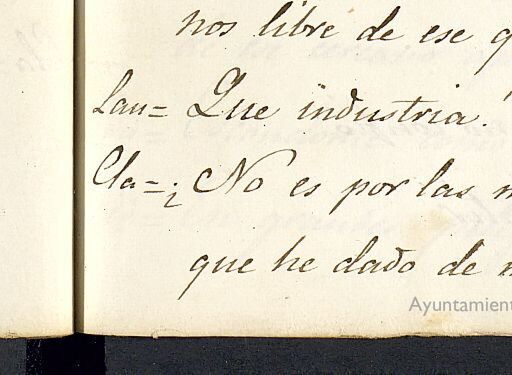 nos libre de ese q
Lau= Que industria!
Cla= ¿No es por las m
que he dado de m
Ayuntamient